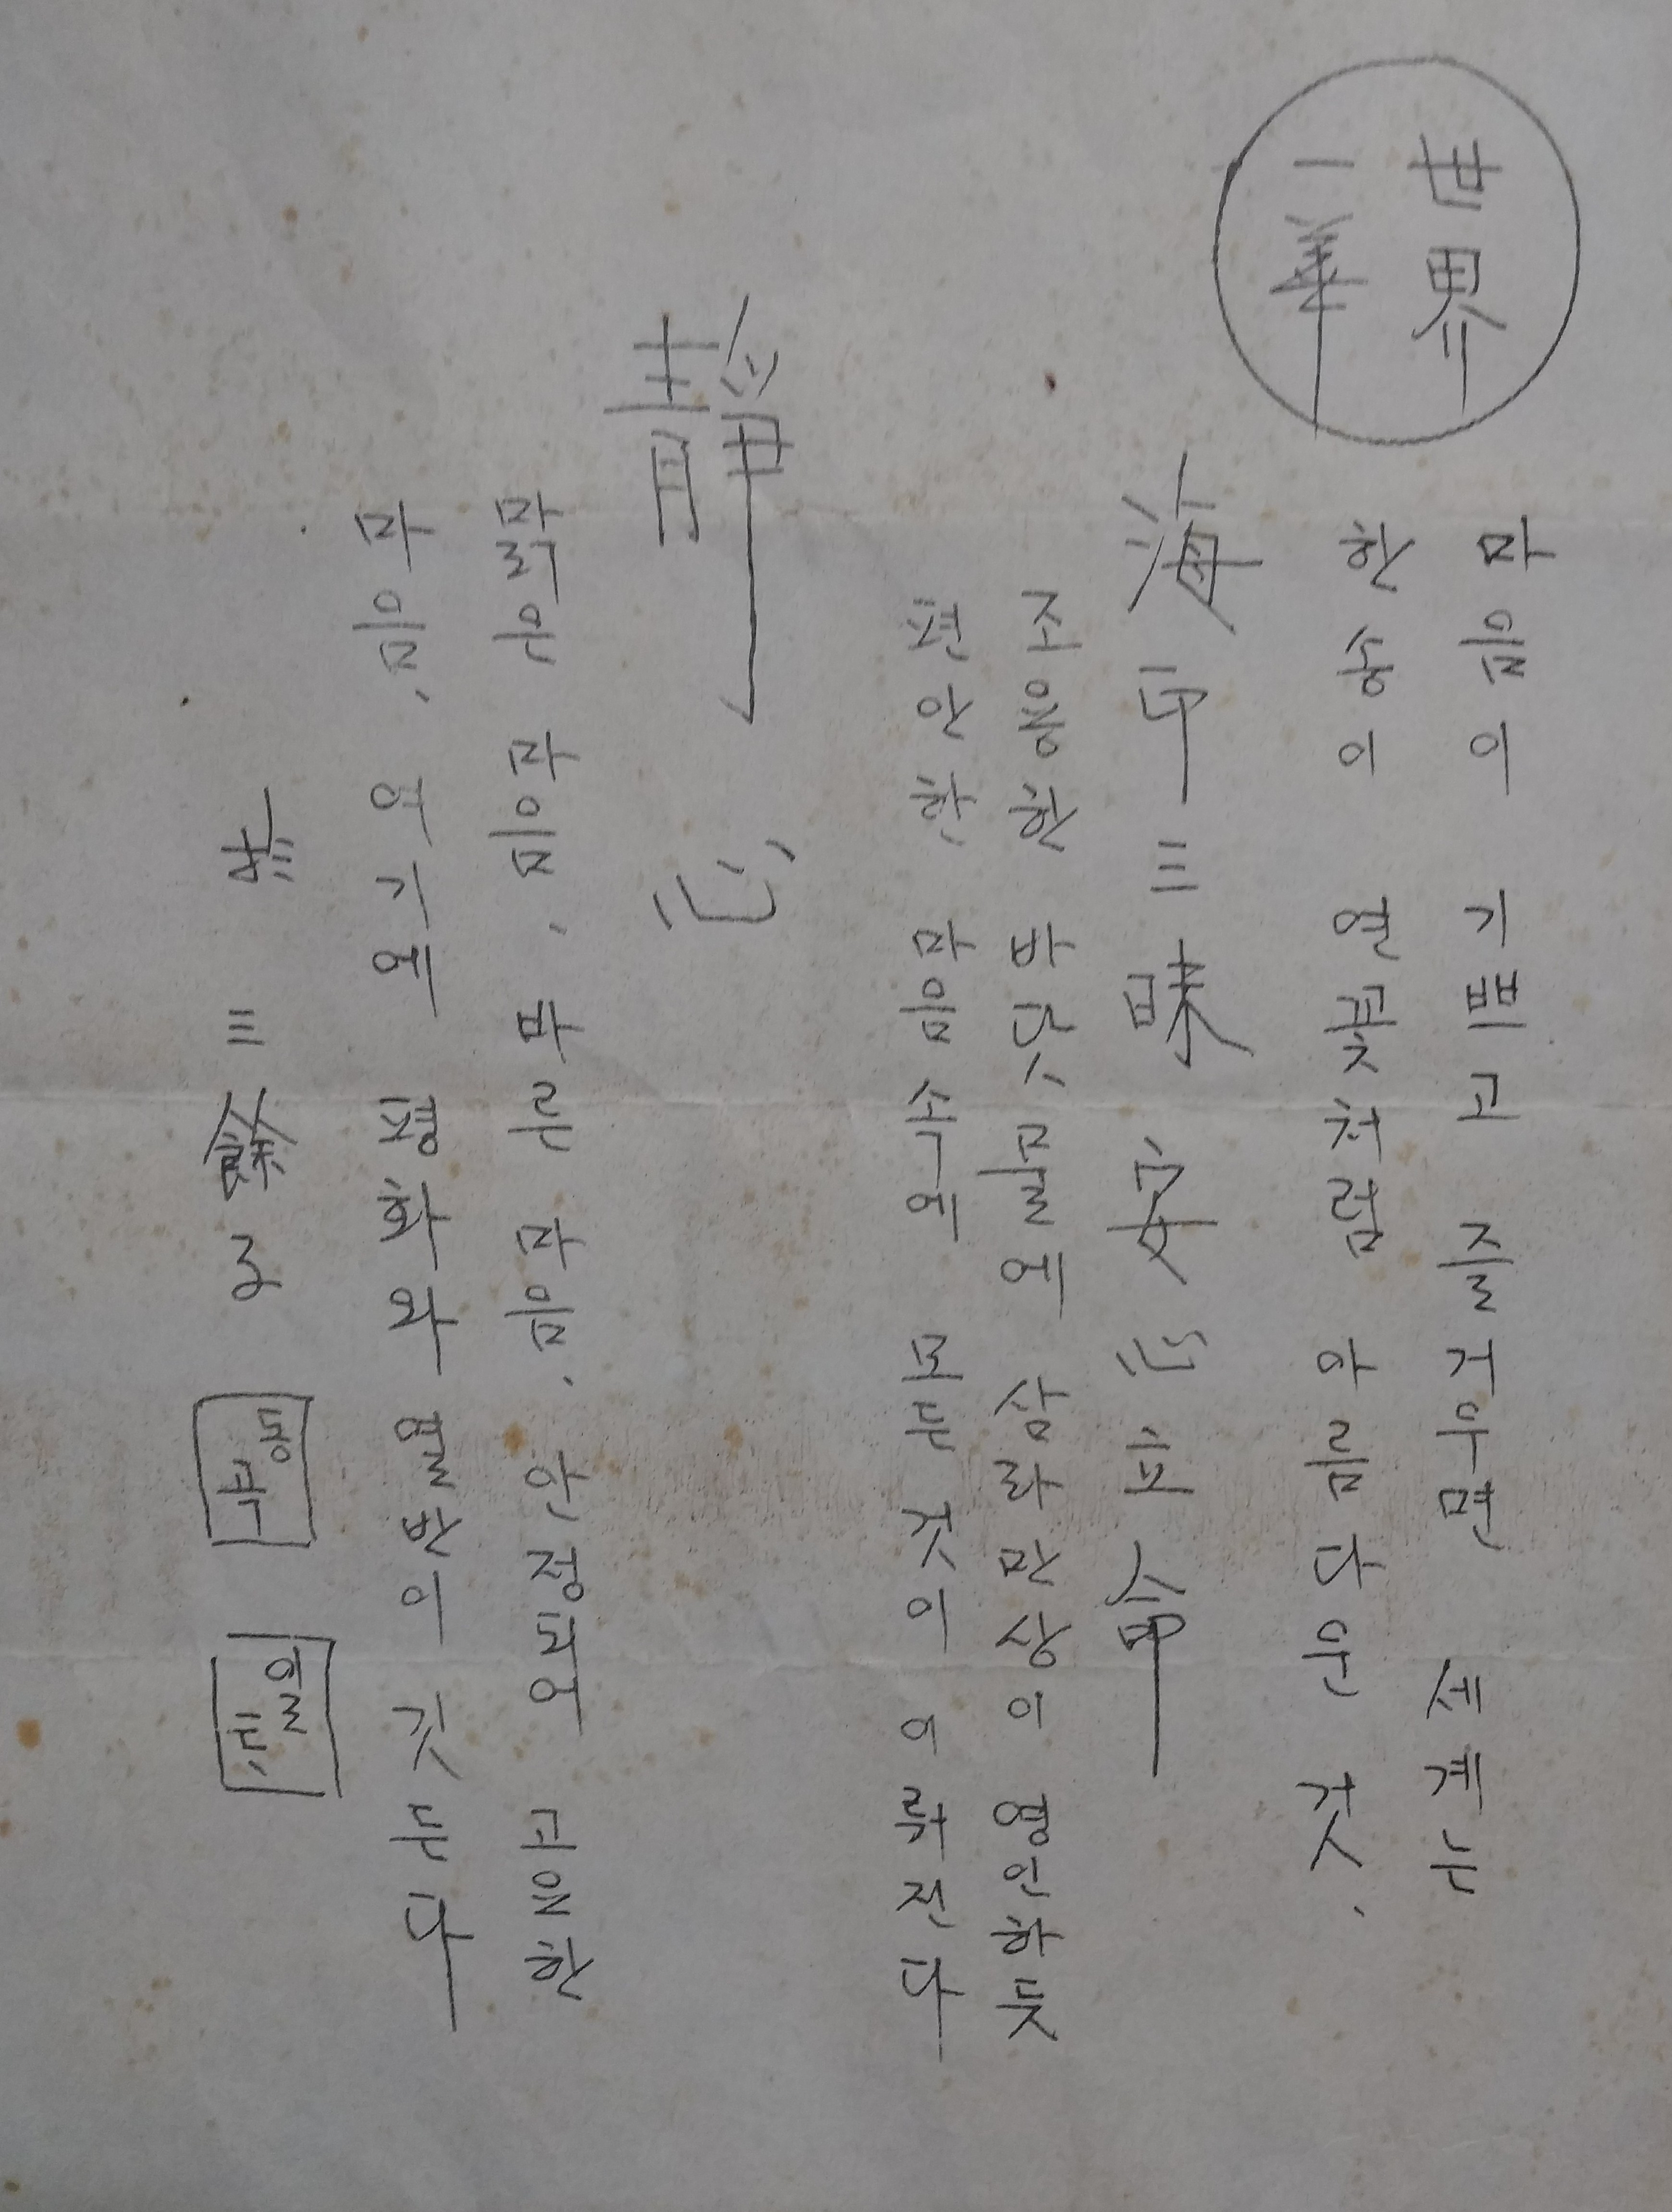 世界
一華
마음이 기쁘고 즐거우면 세계는
한송이 연꽃처럼 아름다운 것.
海印三昧 安心立命
조용한 바닷물에 삼라만상이 영인하듯
편안한 마음속에 모든 것이 이뤄진다
靜心
맑은 마음. 바른 마음. 안정되어 고요한
마음. 여기에 평화와 열반이 깃든다
三餘